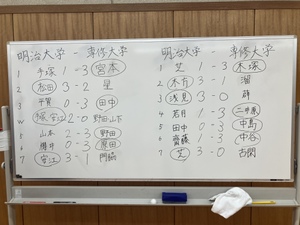 明治大学 - 専修大学
1 手塚 1 - 3 宮本
2 松田 3 - 2 星
3 平賀 0 - 3 田中
W 2 - 0 野田・山下
5 山本 2 - 3 野田
6 櫻井 0 - 3 原田
7 安江 3 - 1 門脇
明治大学 - 専修大学
1 芝 1 - 3 木塚
2 木方 3 - 1 溜
3 浅見 3 - 0 薛
4 若月 1 - 3 二井原
5 田中 0 - 3 中島
6 齋藤 1 - 3 中谷
7 芝 3 - 0 古関